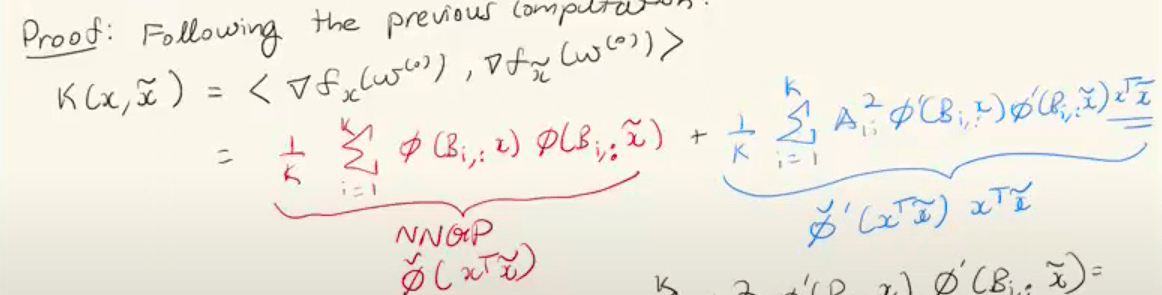 Proof: Following the previous computation.
K(x, x̃) = < ∇f_x(w^(0)), ∇f_x̃(w^(0)) >
= 1/K Σ_{i=1}^{K} φ(B_{i,:} x) φ(B_{i,:} x̃) + 1/K Σ_{i=1}^{K} A_{i}^2 φ'(B_{i,:} x) φ'(B_{i,:} x̃) x^T x̃
NNGP
φ̌(x^T x̃)
φ̌'(x^T x̃) x^T x̃
K φ'(B_{i,:} x̃) =